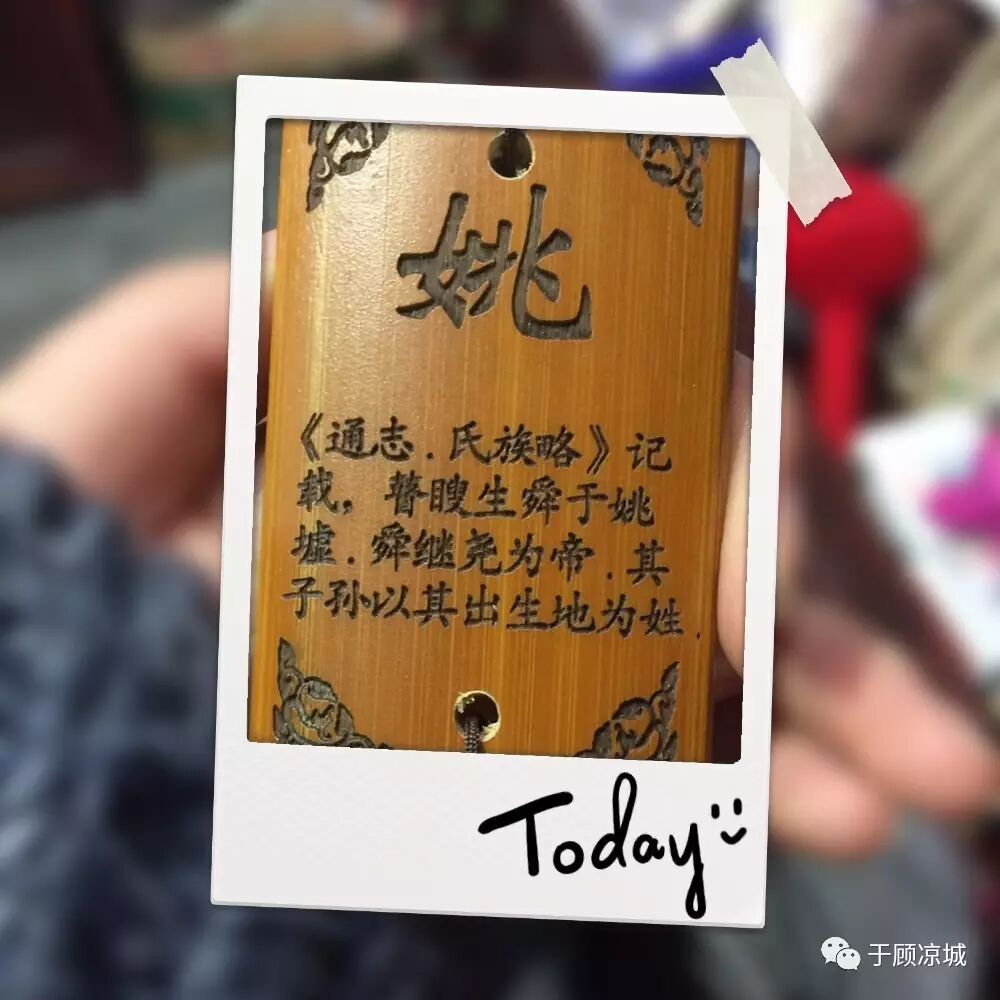 姚
《通志.氏族略》记
载，瞽瞍生舜于姚
墟.舜继尧为帝.其
子孙以其出生地为姓.
Today
于顾凉城